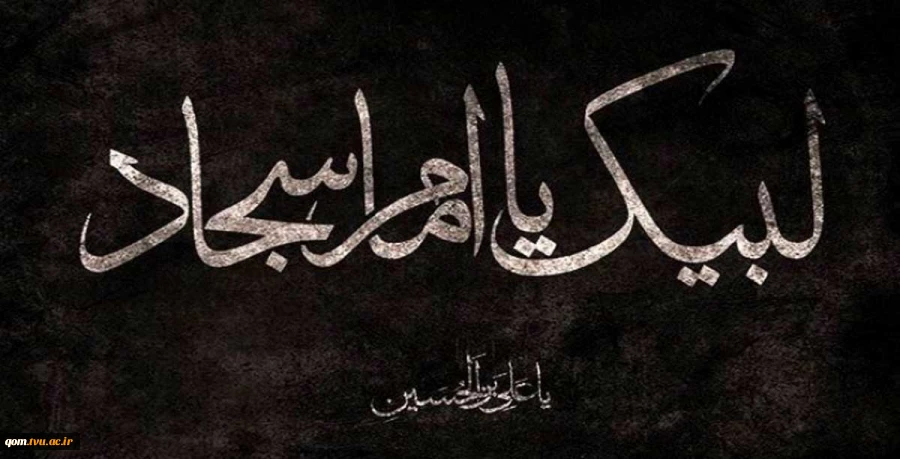 لبیک یا امام سجاد
یا علی بن الحسین
qom.tvu.ac.ir